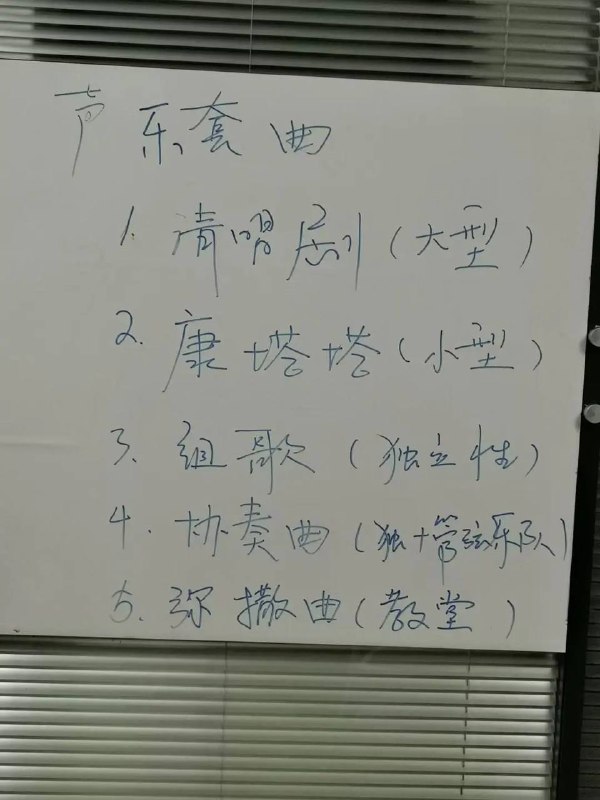 声乐套曲
1. 清唱剧(大型)
2. 康塔塔(小型)
3. 组歌(独立性)
4. 协奏曲(独十管弦乐队)
5. 弥撒曲(教堂)